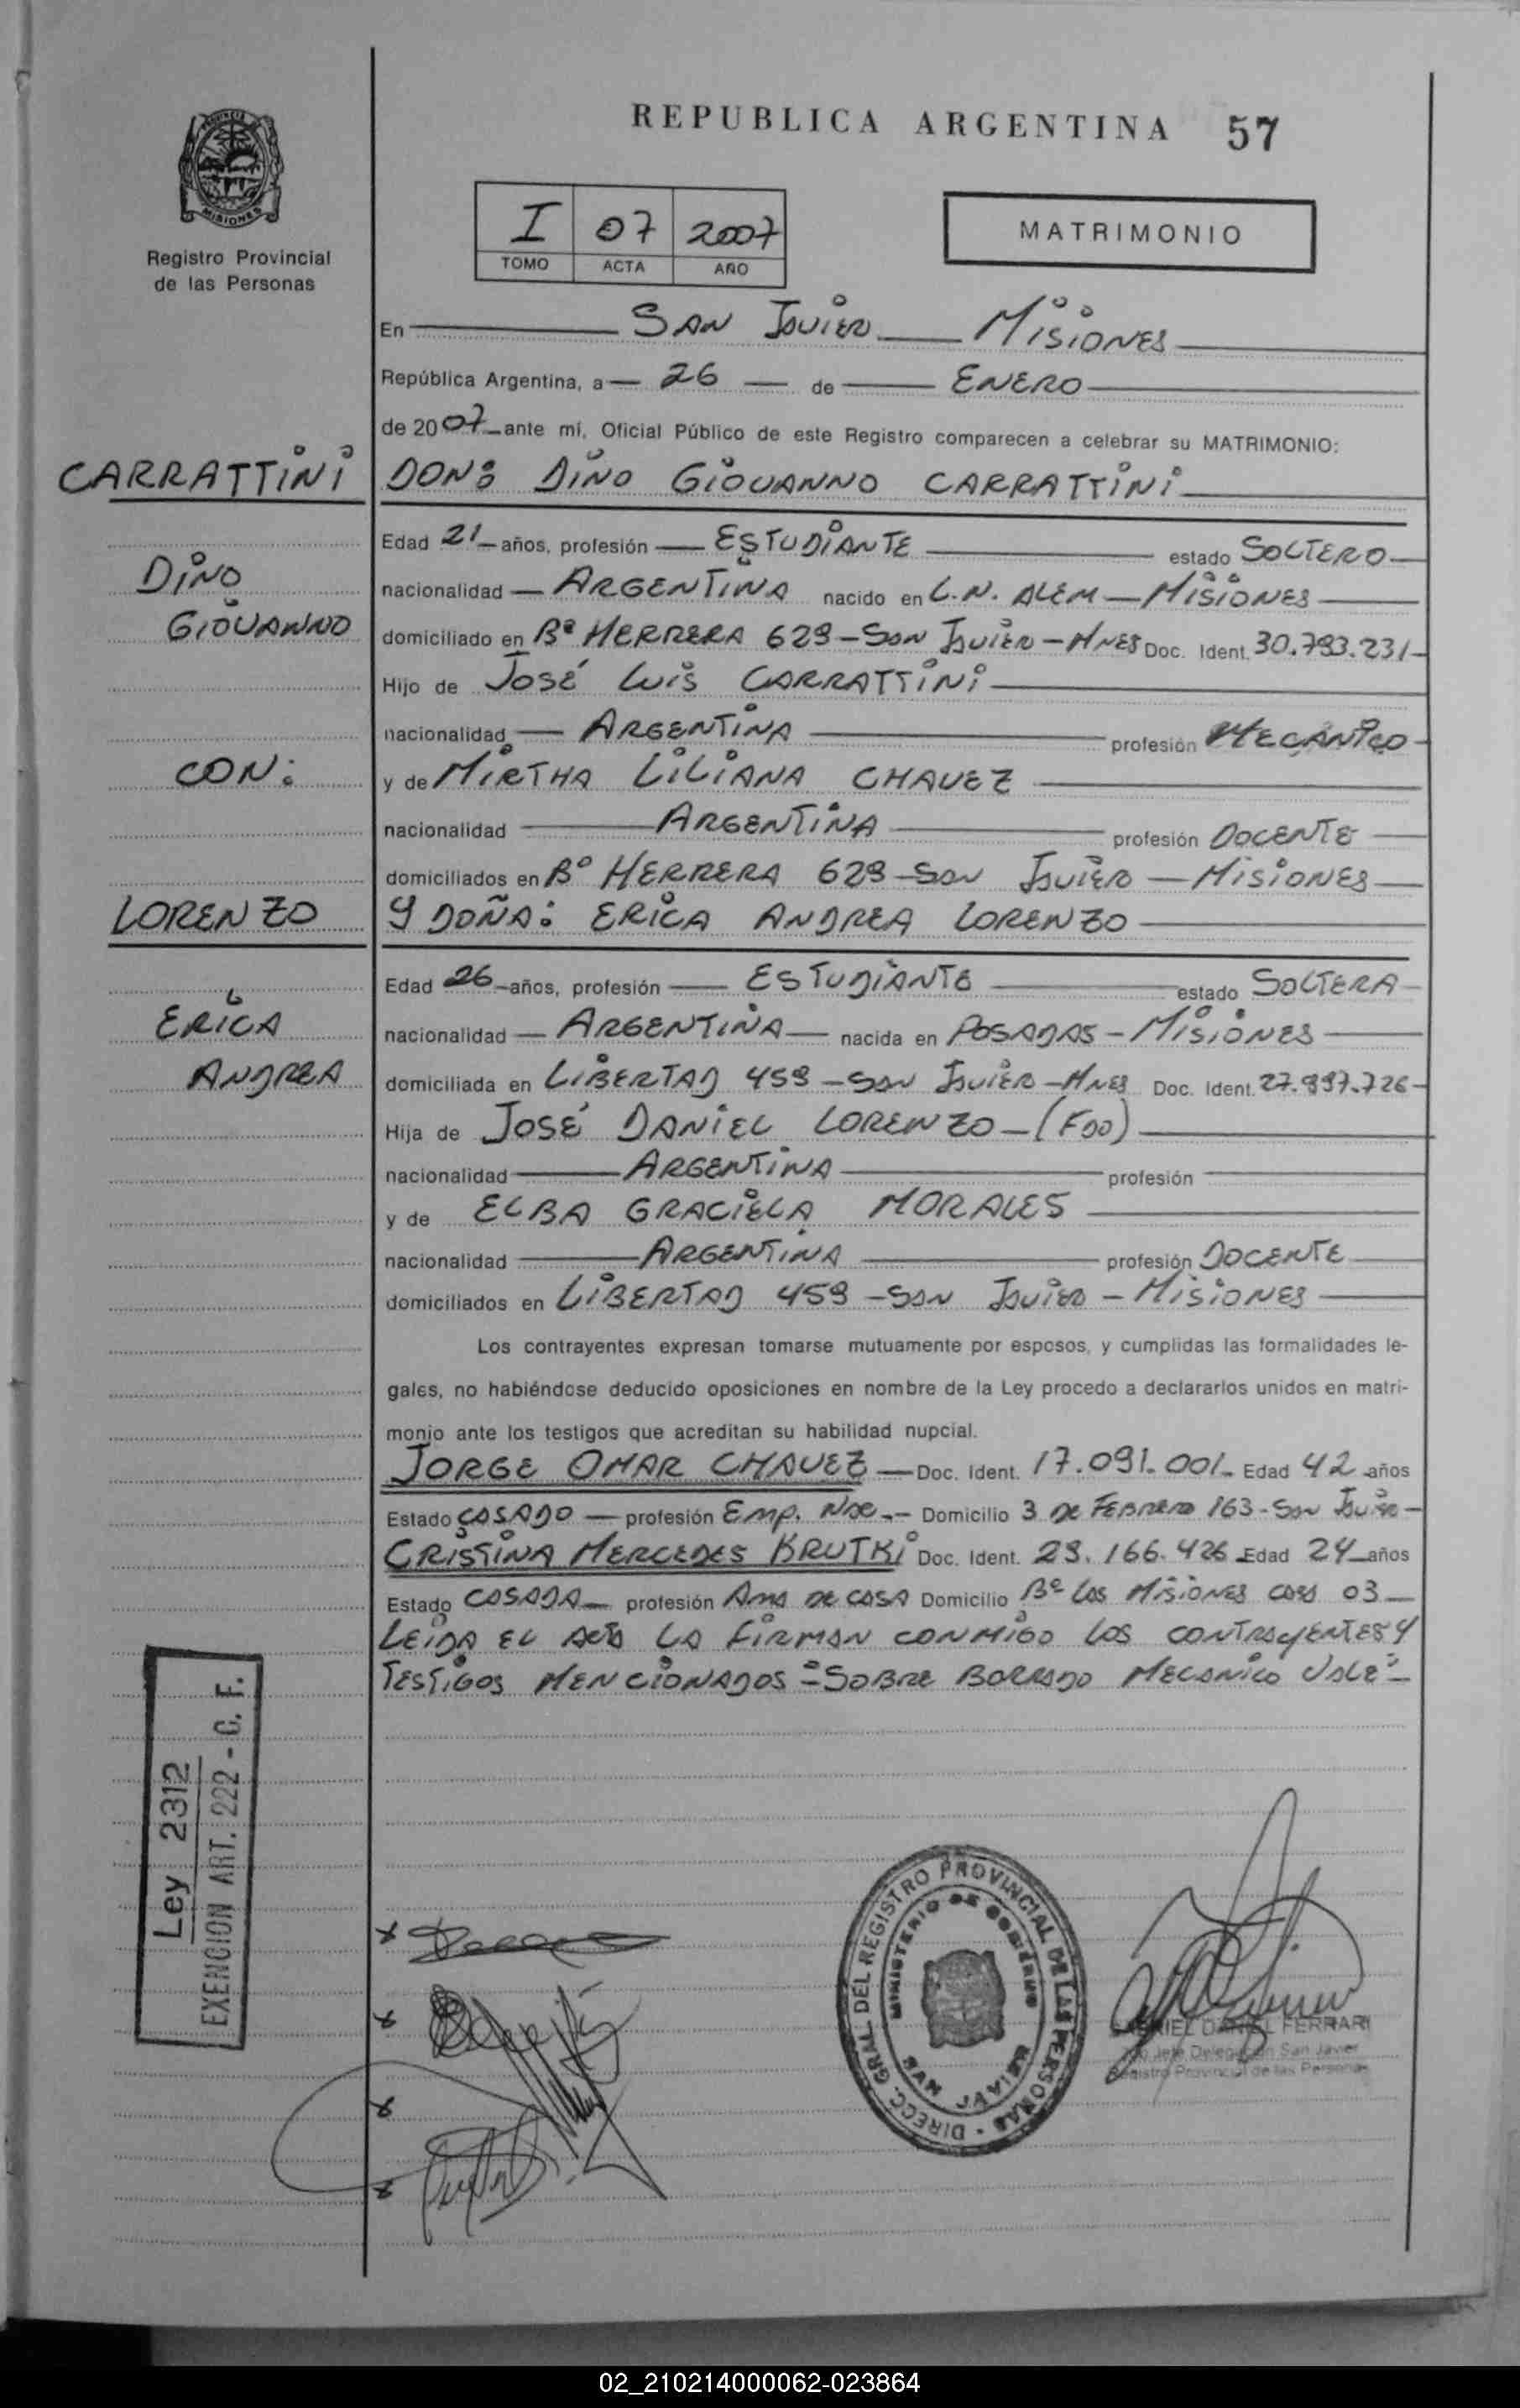 REPUBLICA ARGENTINA 57
MISIONES
Registro Provincial
de las Personas
I 07 2007
TOMO ACTA AÑO
MATRIMONIO
En SAN JAVIER MISIONES
República Argentina, a 26 de ENERO
de 2007 ante mí, Oficial Público de este Registro comparecen a celebrar su MATRIMONIO:
CARRATTINI DON: DINO GIOVANNO CARRATTINI
Edad 21 años, profesión ESTUDIANTE estado SOLTERO
DINO nacionalidad ARGENTINA nacido en L.N. ALEM - MISIONES
GIOVANNO domiciliado en Bº HERRERA 629 - SAN JAVIER - MNES Doc. Ident. 30.793.231
Hijo de JOSÉ LUIS CARRATTINI
nacionalidad ARGENTINA profesión MECANICO
CON: y de MIRTHA LILIANA CHAVEZ
nacionalidad ARGENTINA profesión DOCENTE
domiciliados en Bº HERRERA 629 - SAN JAVIER - MISIONES
LORENZO Y DOÑA: ERICA ANDREA LORENZO
Edad 26 años, profesión ESTUDIANTE estado SOLTERA
ERICA nacionalidad ARGENTINA nacida en POSADAS - MISIONES
ANDREA domiciliada en LIBERTAD 459 - SAN JAVIER - MNES Doc. Ident. 27.997.726
Hija de JOSÉ DANIEL LORENZO - (FDO)
nacionalidad ARGENTINA profesión
y de ELBA GRACIELA MORALES
nacionalidad ARGENTINA profesión DOCENTE
domiciliados en LIBERTAD 459 - SAN JAVIER - MISIONES
Los contrayentes expresan tomarse mutuamente por esposos, y cumplidas las formalidades le-
gales, no habiéndose deducido oposiciones en nombre de la Ley procedo a declararlos unidos en matri-
monio ante los testigos que acreditan su habilidad nupcial.
JORGE OMAR CHAVEZ Doc. Ident. 17.091.001 Edad 42 años
Estado CASADO profesión EMP. Domicilio 3 DE FEBRERO 163 - SAN JAVIER
CRISTINA MERCEDES KRUTKI Doc. Ident. 29.166.426 Edad 24 años
Estado CASADA profesión AMA DE CASA Domicilio Bº LAS MISIONES CASA 03
LEIDA EL ACTA LA FIRMAN CONMIGO LOS CONTRAYENTES Y
TESTIGOS MENCIONADOS = SOBRE BORRADO MECANICO VALE =
Ley 2312
EXENCION ART. 222 - C. F.
DIRECC. GRAL DEL REGISTRO PROVINCIAL DE LAS PERSONAS
MINISTERIO DE GOBIERNO
SAN JAVIER
GABRIEL DANIEL FERRARI
Jefe Delegación San Javier
Registro Provincial de las Personas
02_210214000062-023864